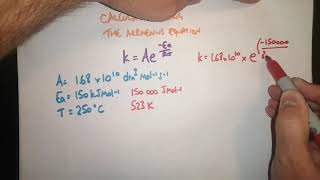 THE ARRHENIUS EQUATION
k = Ae^(-Ea/RT)
k = 1.68 x 10^10 x e^(-150000
A = 1.68 x 10^10 dm^3 mol^-1 s^-1
Ea = 150 kJmol^-1 150 000 Jmol^-1
T = 250°C 523 K